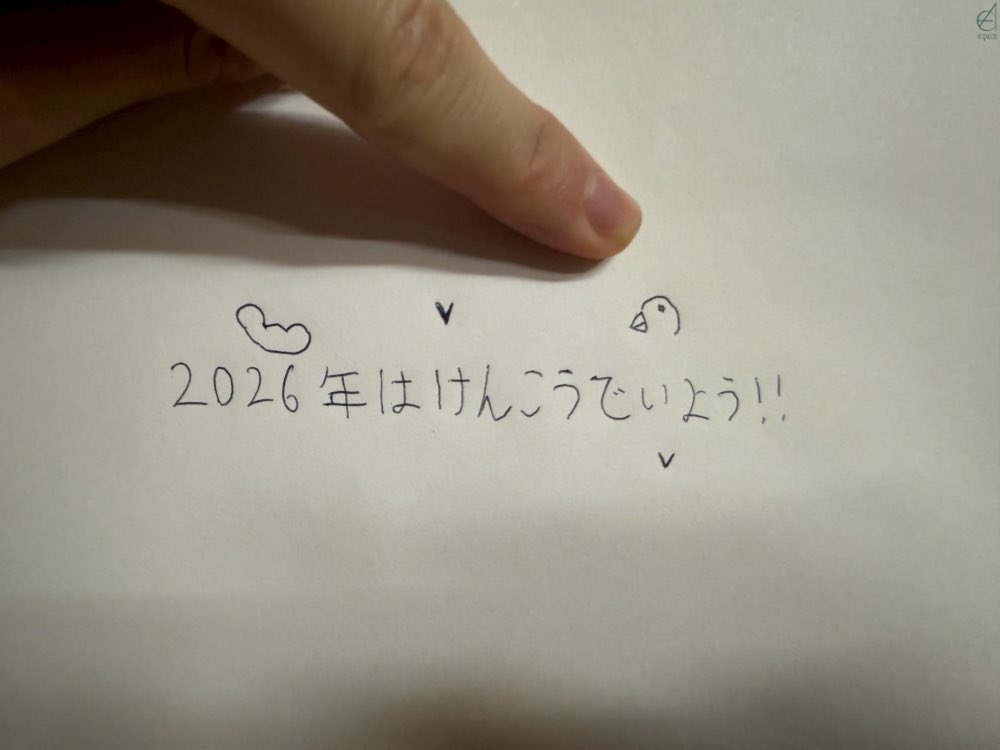 epex
2026年はけんこうでいよう!!